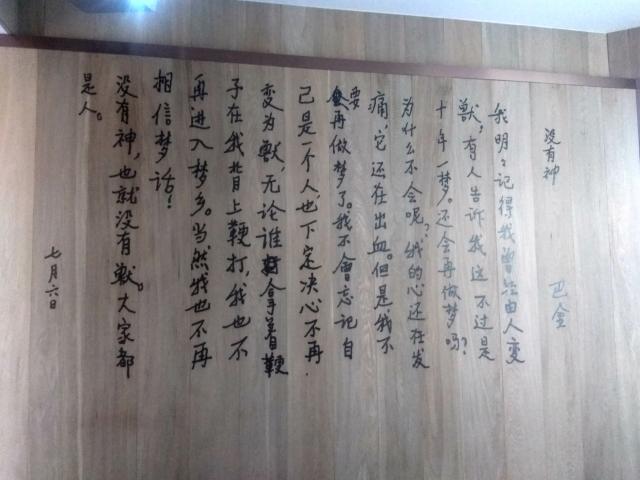 没有神
巴金
我明明记得我曾经由人变
兽，有人告诉我这不过是
十年一梦。还会再做梦吗？
为什么不会呢？我的心还在发
痛，它还在出血。但是我不
要再做梦了。我不会忘记自
己是一个人，也下定决心不再
变为兽，无论谁拿着鞭
子在我背上鞭打，我也不
再进入梦乡。当然我也不再
相信梦话！
没有神，也就没有兽。大家都
是人。
七月六日